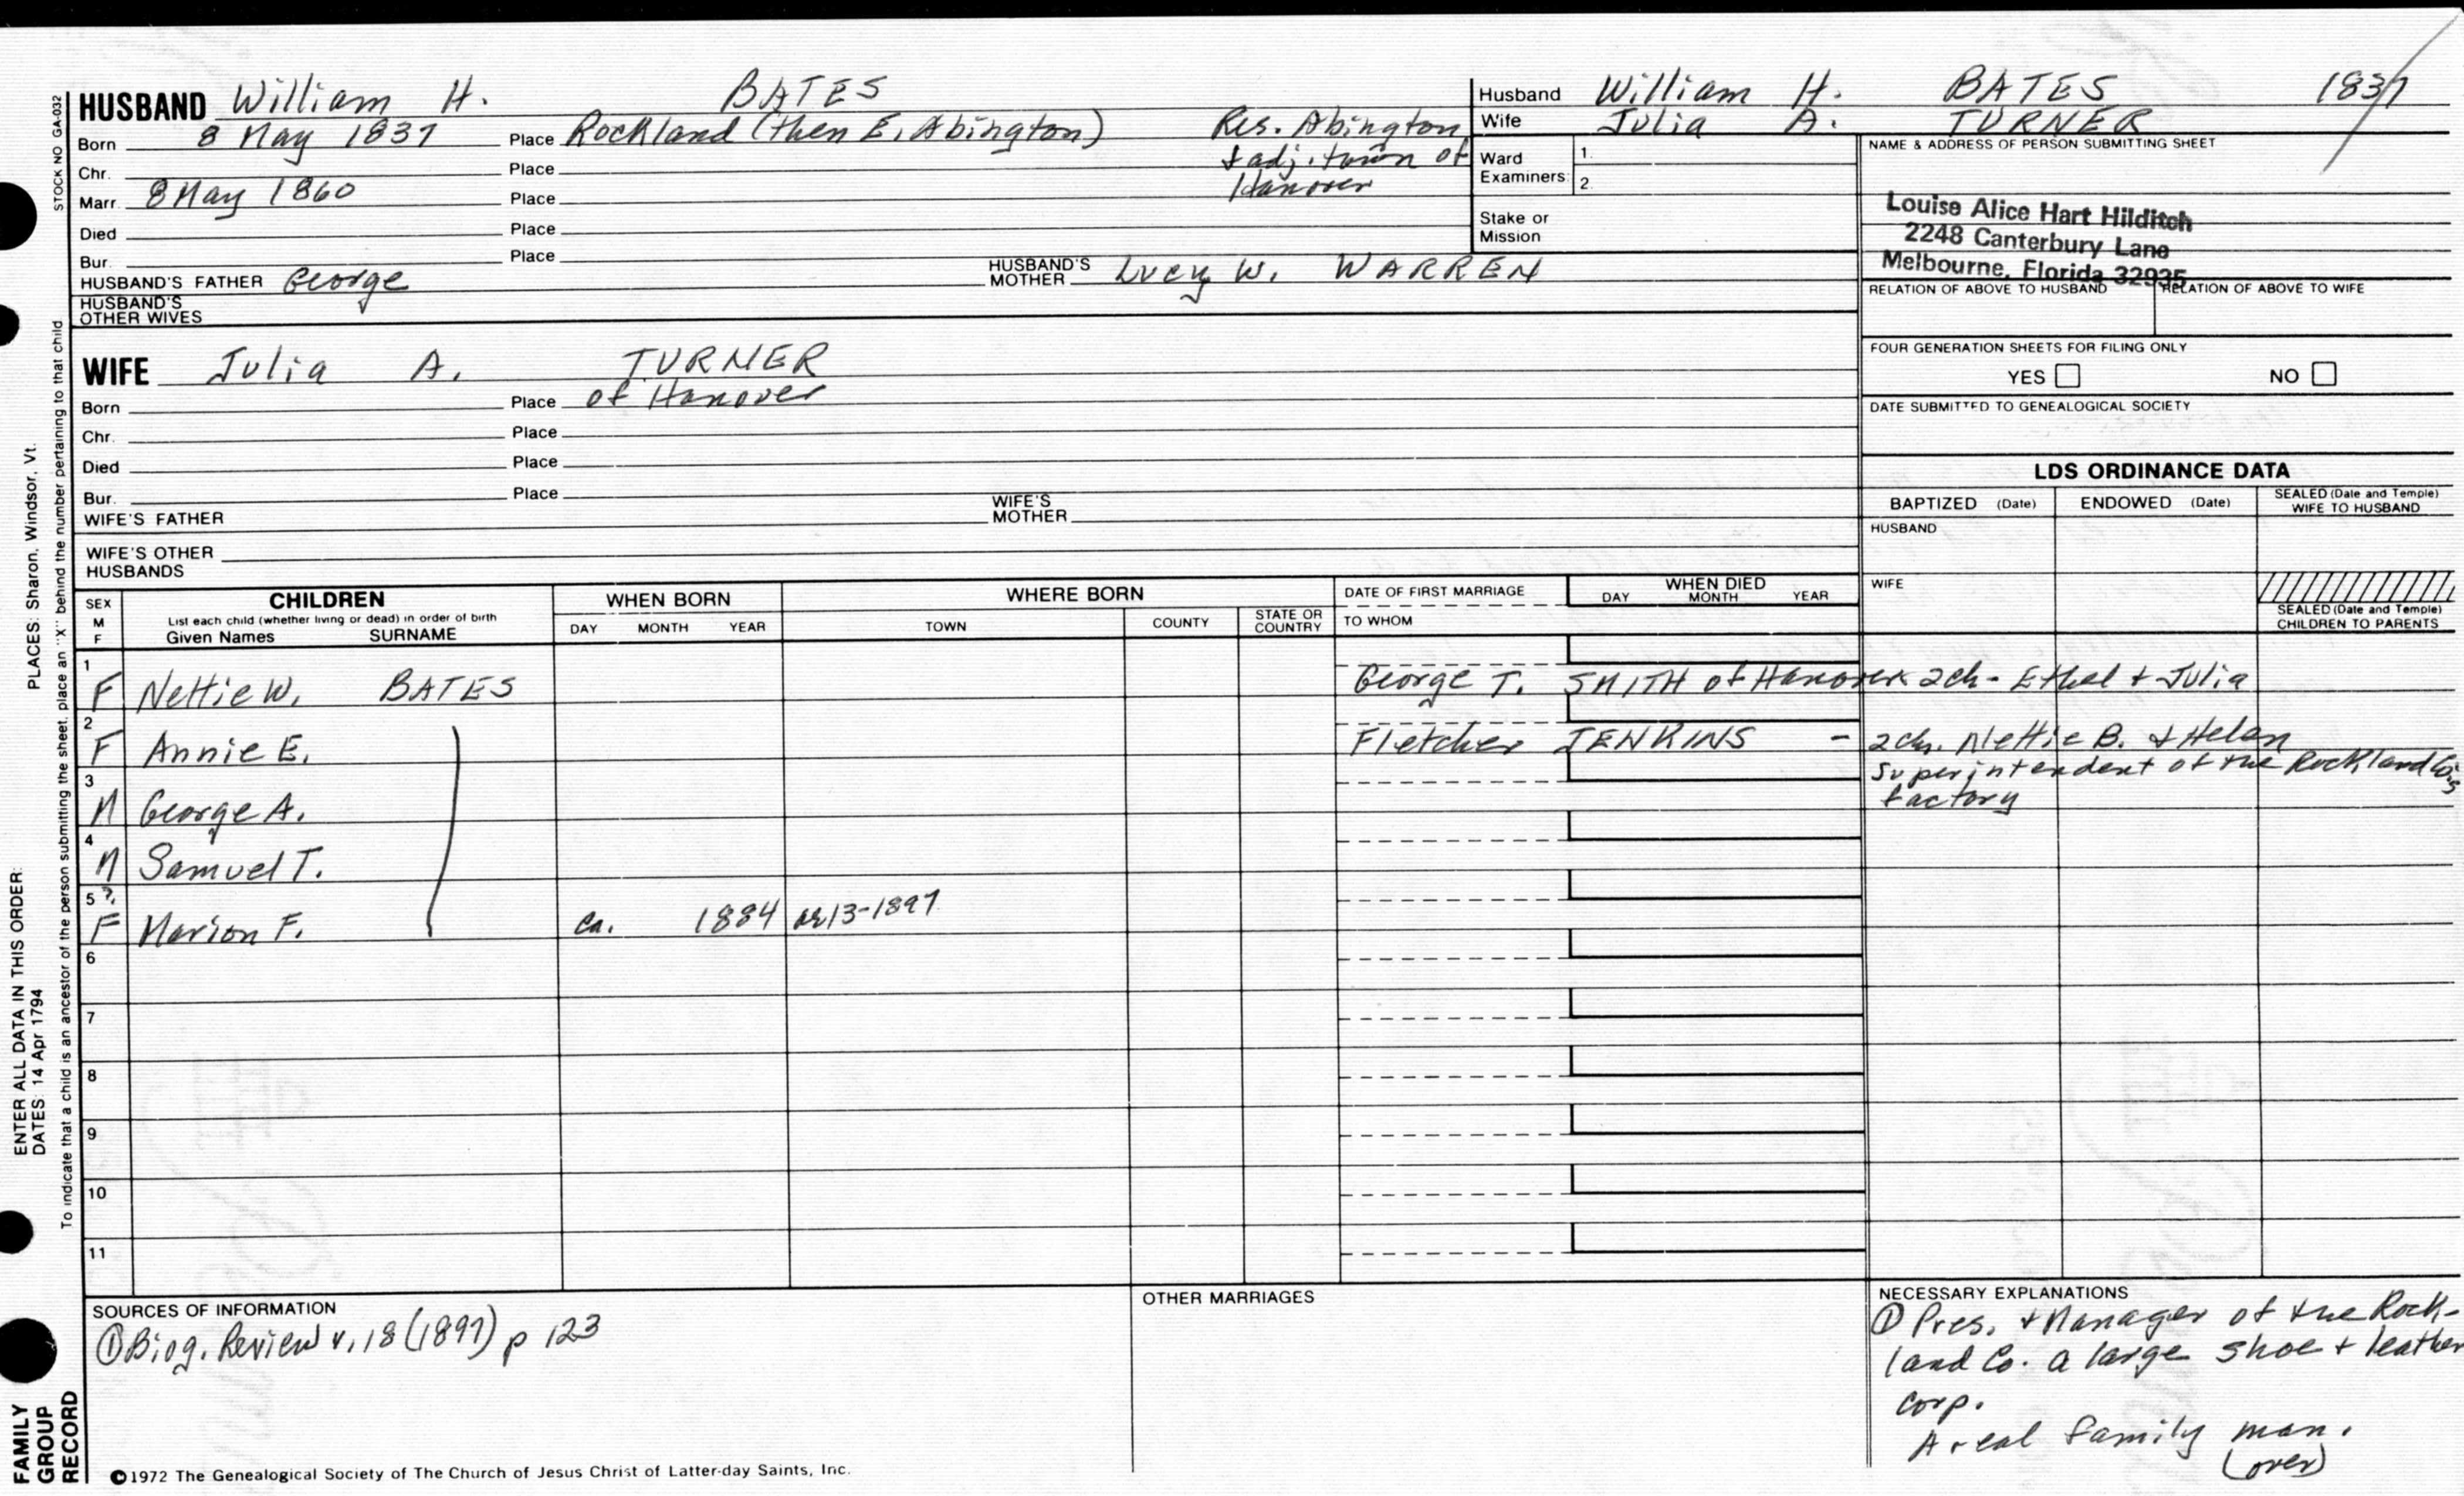 HUSBAND William H. BATES
Born 8 May 1837 Place Rockland (then E. Abington) Res. Abington
& adj. town of
Hanover
Chr. Place
Marr. 8 May 1860 Place
Died Place
Bur. Place
HUSBAND'S FATHER George HUSBAND'S MOTHER Lucy W. WARREN
HUSBAND'S OTHER WIVES
Husband William H. BATES 1837
Wife Julia A. TURNER
Ward Examiners 1.
2.
Stake or Mission
NAME & ADDRESS OF PERSON SUBMITTING SHEET
Louise Alice Hart Hilditch
2248 Canterbury Lane
Melbourne, Florida 32935
RELATION OF ABOVE TO HUSBAND RELATION OF ABOVE TO WIFE
FOUR GENERATION SHEETS FOR FILING ONLY
YES NO
DATE SUBMITTED TO GENEALOGICAL SOCIETY
WIFE Julia A. TURNER
Born Place of Hanover
Chr. Place
Died Place
Bur. Place
WIFE'S FATHER WIFE'S MOTHER
WIFE'S OTHER HUSBANDS
LDS ORDINANCE DATA
BAPTIZED (Date) ENDOWED (Date) SEALED (Date and Temple) WIFE TO HUSBAND
HUSBAND
WIFE
SEALED (Date and Temple) CHILDREN TO PARENTS
SEX M F
CHILDREN
List each child (whether living or dead) in order of birth
Given Names SURNAME
WHEN BORN
DAY MONTH YEAR
WHERE BORN
TOWN COUNTY STATE OR COUNTRY
DATE OF FIRST MARRIAGE
TO WHOM
WHEN DIED
DAY MONTH YEAR
1 F Nettie W. BATES George T. SMITH of Hanover 2ch - Ethel & Julia
2 F Annie E. Fletcher JENKINS - 2ch. Nettie B. & Helen
3 M George A. Superintendent of the Rockland Co's
factory
4 M Samuel T.
5 ? F Marion F. ca. 1884 ae 13-1897
6
7
8
9
10
11
SOURCES OF INFORMATION
① Biog. Review v. 18 (1897) p 123
OTHER MARRIAGES
NECESSARY EXPLANATIONS
① Pres. & Manager of the Rock-
land Co. a large shoe & leather
corp.
A real family man.
(over)
©1972 The Genealogical Society of The Church of Jesus Christ of Latter-day Saints, Inc.
STOCK NO GA-032
To indicate that a child is an ancestor of the person submitting the sheet, place an "X" behind the number pertaining to that child
ENTER ALL DATA IN THIS ORDER:
DATES: 14 Apr 1794
PLACES: Sharon, Windsor, Vt.
FAMILY
GROUP
RECORD